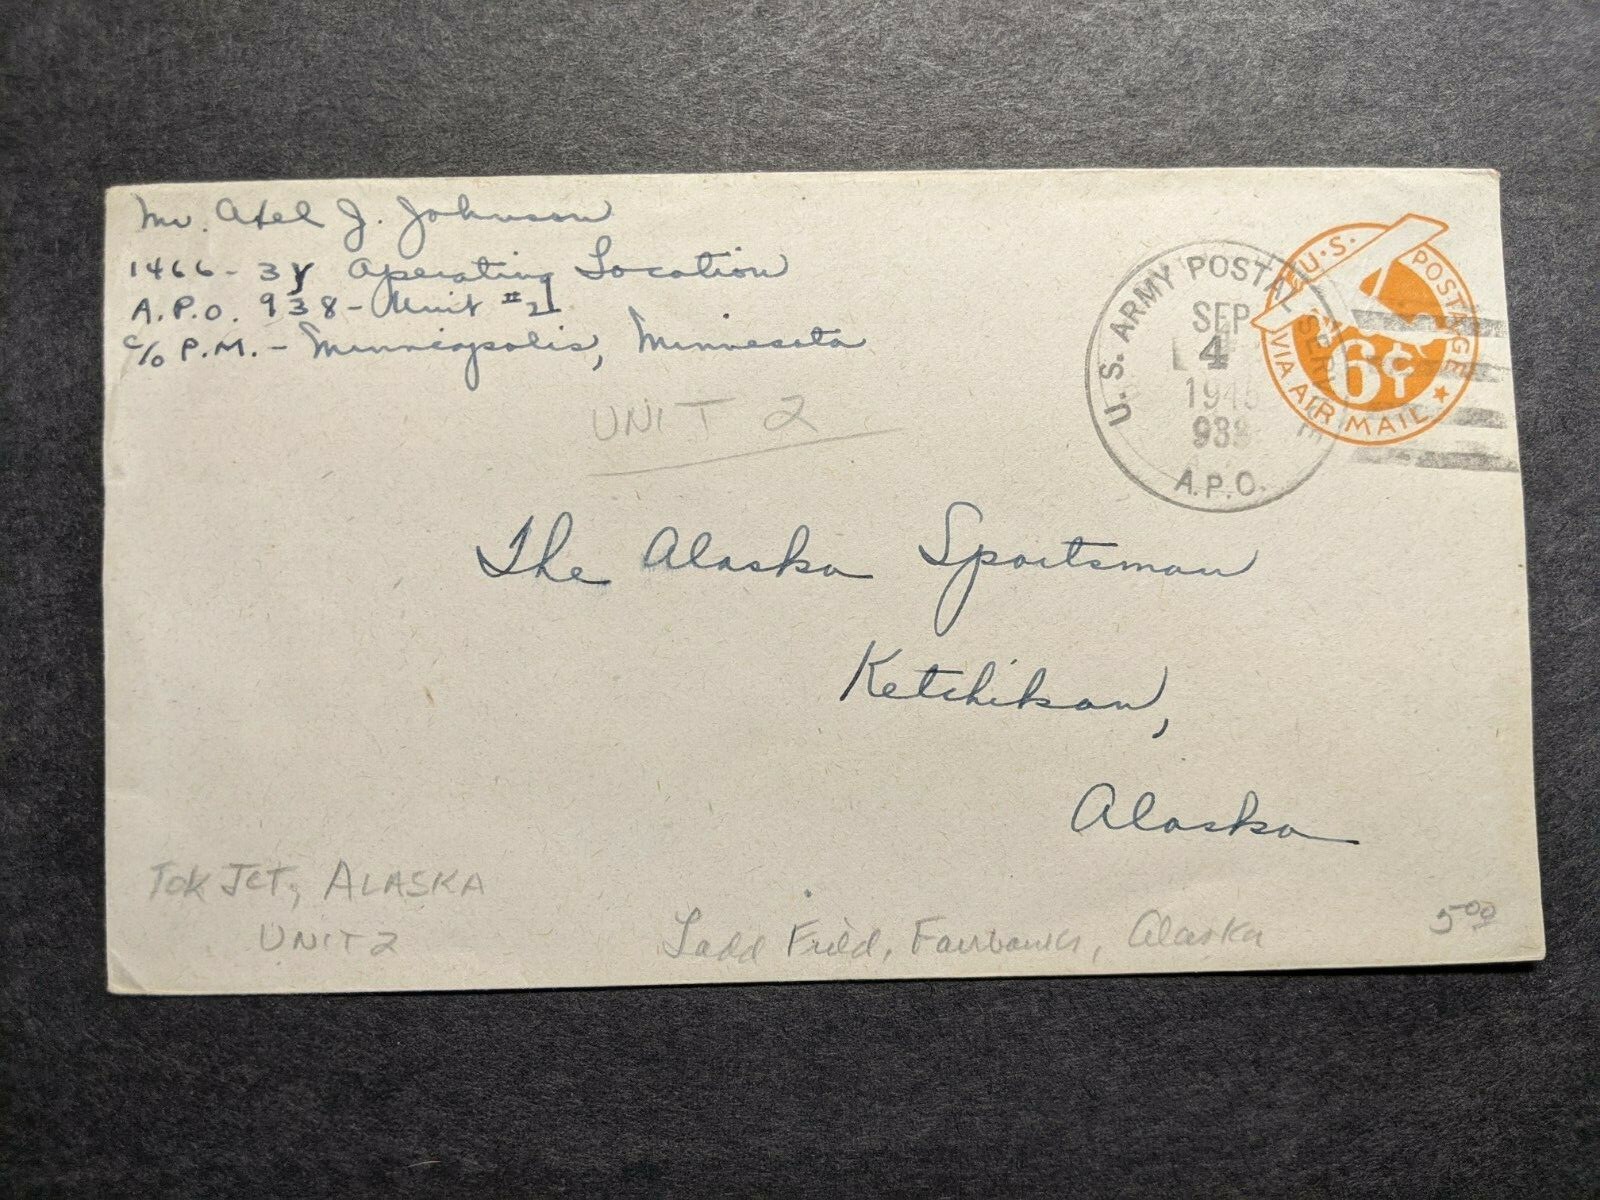 Mr. Axel J. Johnson
1466 - 3y Operating Location
A.P.O. 938 - Unit #2
c/o P.M. - Minneapolis, Minnesota
U.S. ARMY POSTAL SERVICE
SEP
4
1945
938
A.P.O.
U.S. POSTAGE
6¢
VIA AIR MAIL
UNIT 2
The Alaska Sportsman
Ketchikan,
Alaska
TOK JCT, ALASKA
UNIT 2
Ladd Field, Fairbanks, Alaska
5.00